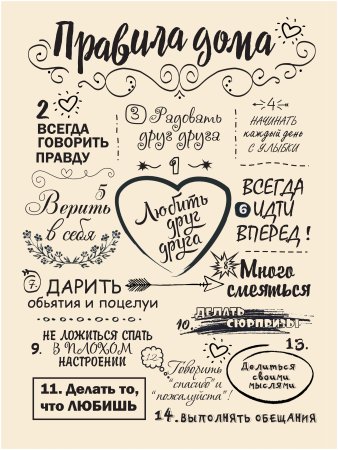 Правила дома
1
Любить
друг
друга
2
ВСЕГДА
ГОВОРИТЬ
ПРАВДУ
3 Радовать
друг друга
4
НАЧИНАТЬ
каждый день
С УЛЫБКИ
5
Верить
в себя
ВСЕГДА
6 ИДТИ
ВПЕРЕД!
7. ДАРИТЬ
обьятия и поцелуи
8 Много
смеяться
НЕ ЛОЖИТЬСЯ СПАТЬ
9. В ПЛОХОМ
НАСТРОЕНИИ
10. ДЕЛАТЬ
СЮРПРИЗЫ
11. Делать то,
что ЛЮБИШЬ
12. Говорить
"спасибо" и
"пожалуйста"!
13.
Делиться
своими
мыслями
14. ВЫПОЛНЯТЬ ОБЕЩАНИЯ